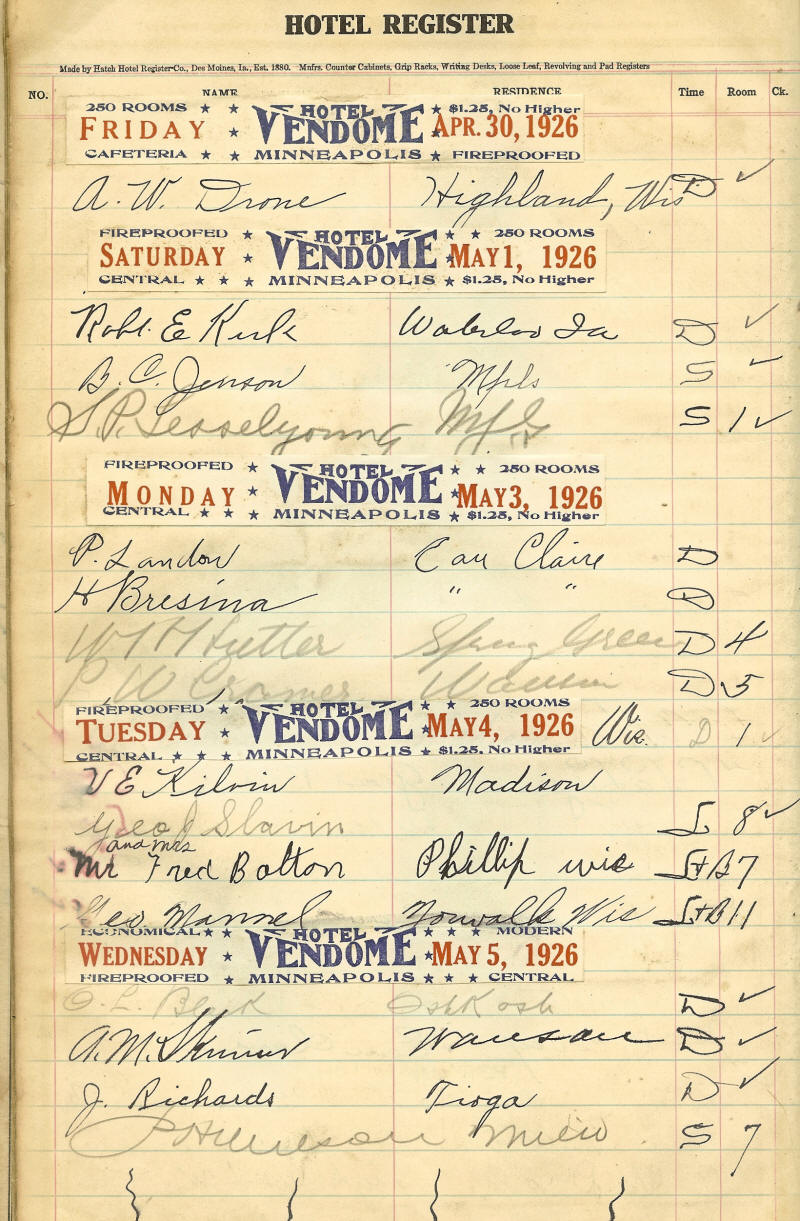 HOTEL REGISTER
Made by Hatch Hotel Register Co., Des Moines, Ia., Est. 1880. Mnfrs. Counter Cabinets, Grip Racks, Writing Desks, Loose Leaf, Revolving and Pad Registers
NO. NAME RESIDENCE Time Room Ck.
250 ROOMS ★ ★ HOTEL ★ $1.25, No Higher
FRIDAY ★ VENDOME APR. 30, 1926
CAFETERIA ★ ★ MINNEAPOLIS ★ FIREPROOFED
A. W. Drone Highland, Wis D ✓
FIREPROOFED ★ HOTEL ★ ★ 250 ROOMS
SATURDAY ★ VENDOME ★ MAY 1, 1926
CENTRAL ★ ★ ★ MINNEAPOLIS ★ $1.25, No Higher
Robt. E Kirk Waterloo Ia D ✓
B. C. Jenson Mpls S ✓
S. P. S 1 ✓
FIREPROOFED ★ HOTEL ★ ★ 250 ROOMS
MONDAY ★ VENDOME ★ MAY 3, 1926
CENTRAL ★ ★ ★ MINNEAPOLIS ★ $1.25, No Higher
P. Landon Eau Claire D
H Bresina " " D
Spring Green D 4
P W Cramer Wausau D 5
FIREPROOFED ★ HOTEL ★ ★ 250 ROOMS
TUESDAY ★ VENDOME ★ MAY 4, 1926 Wis. D 1 ✓
CENTRAL ★ ★ MINNEAPOLIS ★ $1.25, No Higher
V E Kilvin Madison
Geo J Slavin L 8 ✓
and Mrs
Mr Fred Bolton Phillip wis L+B 7
Geo Mannel Norwalk Wis L+B 11
ECONOMICAL ★ ★ HOTEL ★ ★ ★ MODERN
WEDNESDAY ★ VENDOME ★ MAY 5, 1926
FIREPROOFED ★ MINNEAPOLIS ★ ★ ★ CENTRAL
O. L. OshKosh D ✓
A. M. Skinner Wausau D ✓
J. Richards Tioga D ✓
Milw S 7